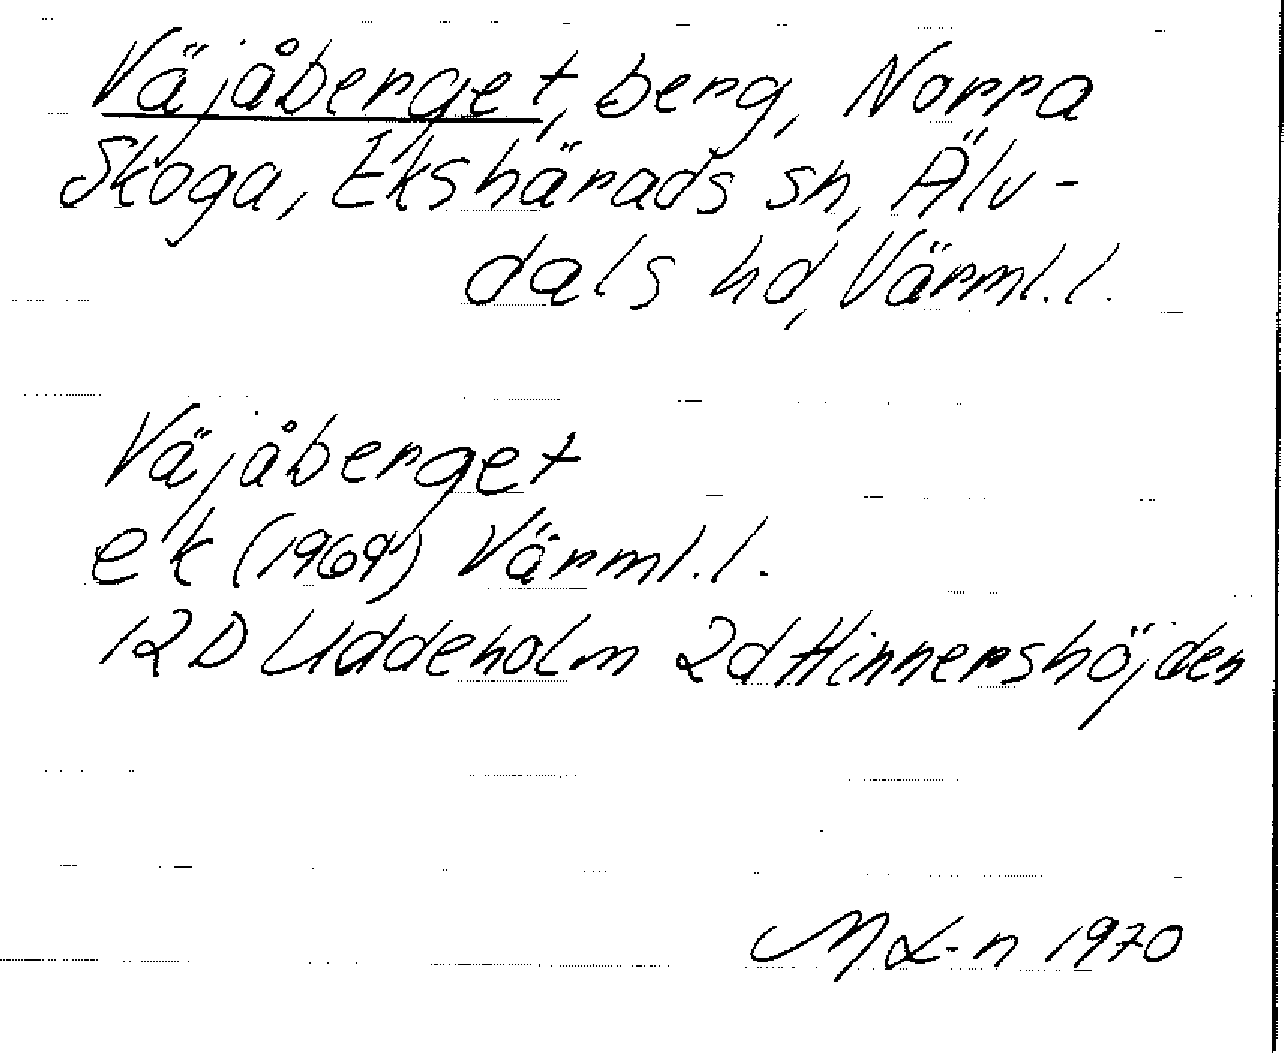 Väjåberget, berg, Norra
Skoga, Ekshärads sn, Älv-
dals hd, Värml. l.
Väjåberget
ek (1969) Värml. l.
12D Uddeholm 2d Hinnershöjden
M L-n 1970